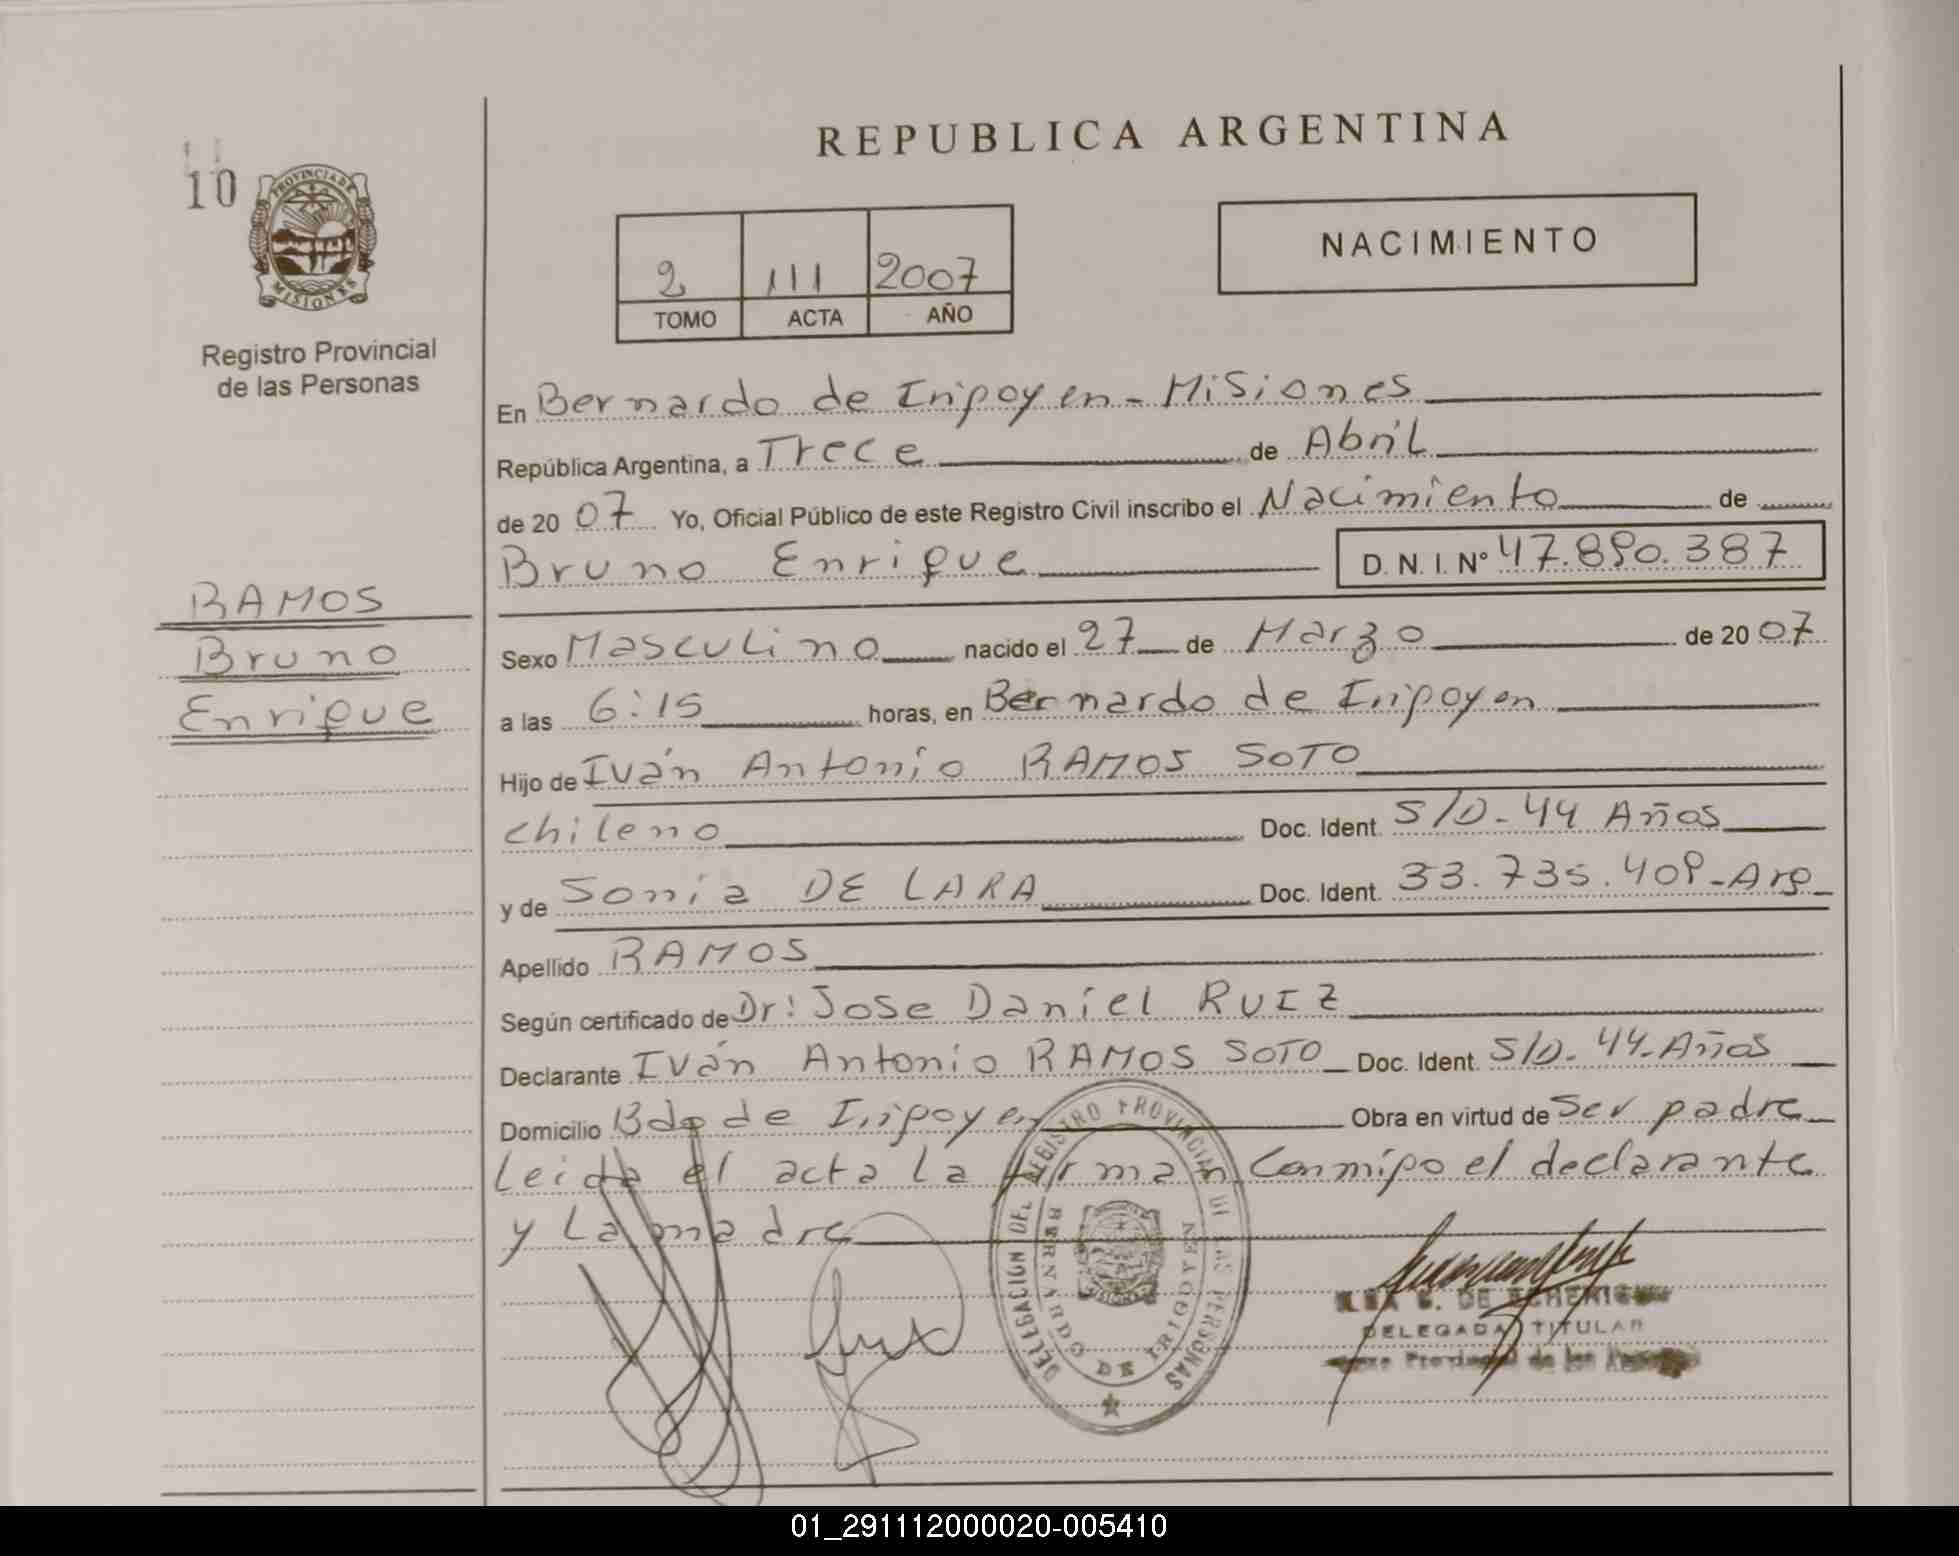 REPUBLICA ARGENTINA
10
PROVINCIA DE
MISIONES
Registro Provincial
de las Personas
NACIMIENTO
2 111 2007
TOMO ACTA AÑO
En Bernardo de Irigoyen - Misiones
República Argentina, a Trece de Abril
de 2007 Yo, Oficial Público de este Registro Civil inscribo el Nacimiento de
Bruno Enrique D. N. I. Nº 47.890.387
RAMOS
Bruno
Enrique
Sexo Masculino nacido el 27 de Marzo de 2007
a las 6:15 horas, en Bernardo de Irigoyen
Hijo de Iván Antonio RAMOS SOTO
chileno Doc. Ident. S/D - 44 Años
y de Sonia DE LARA Doc. Ident. 33.735.409 - Arg
Apellido RAMOS
Según certificado de Dr: Jose Daniel RUIZ
Declarante Iván Antonio RAMOS SOTO Doc. Ident. S/D - 44 - Años
Domicilio Bdo de Irigoyen Obra en virtud de ser padre
Leida el acta La firman Conmigo el declarante
y La madre
DELEGACION DEL REGISTRO PROVINCIAL DE LAS PERSONAS
BERNARDO DE IRIGOYEN
DE ECHENIQUE
DELEGADA TITULAR
Provincial de las
01_291112000020-005410